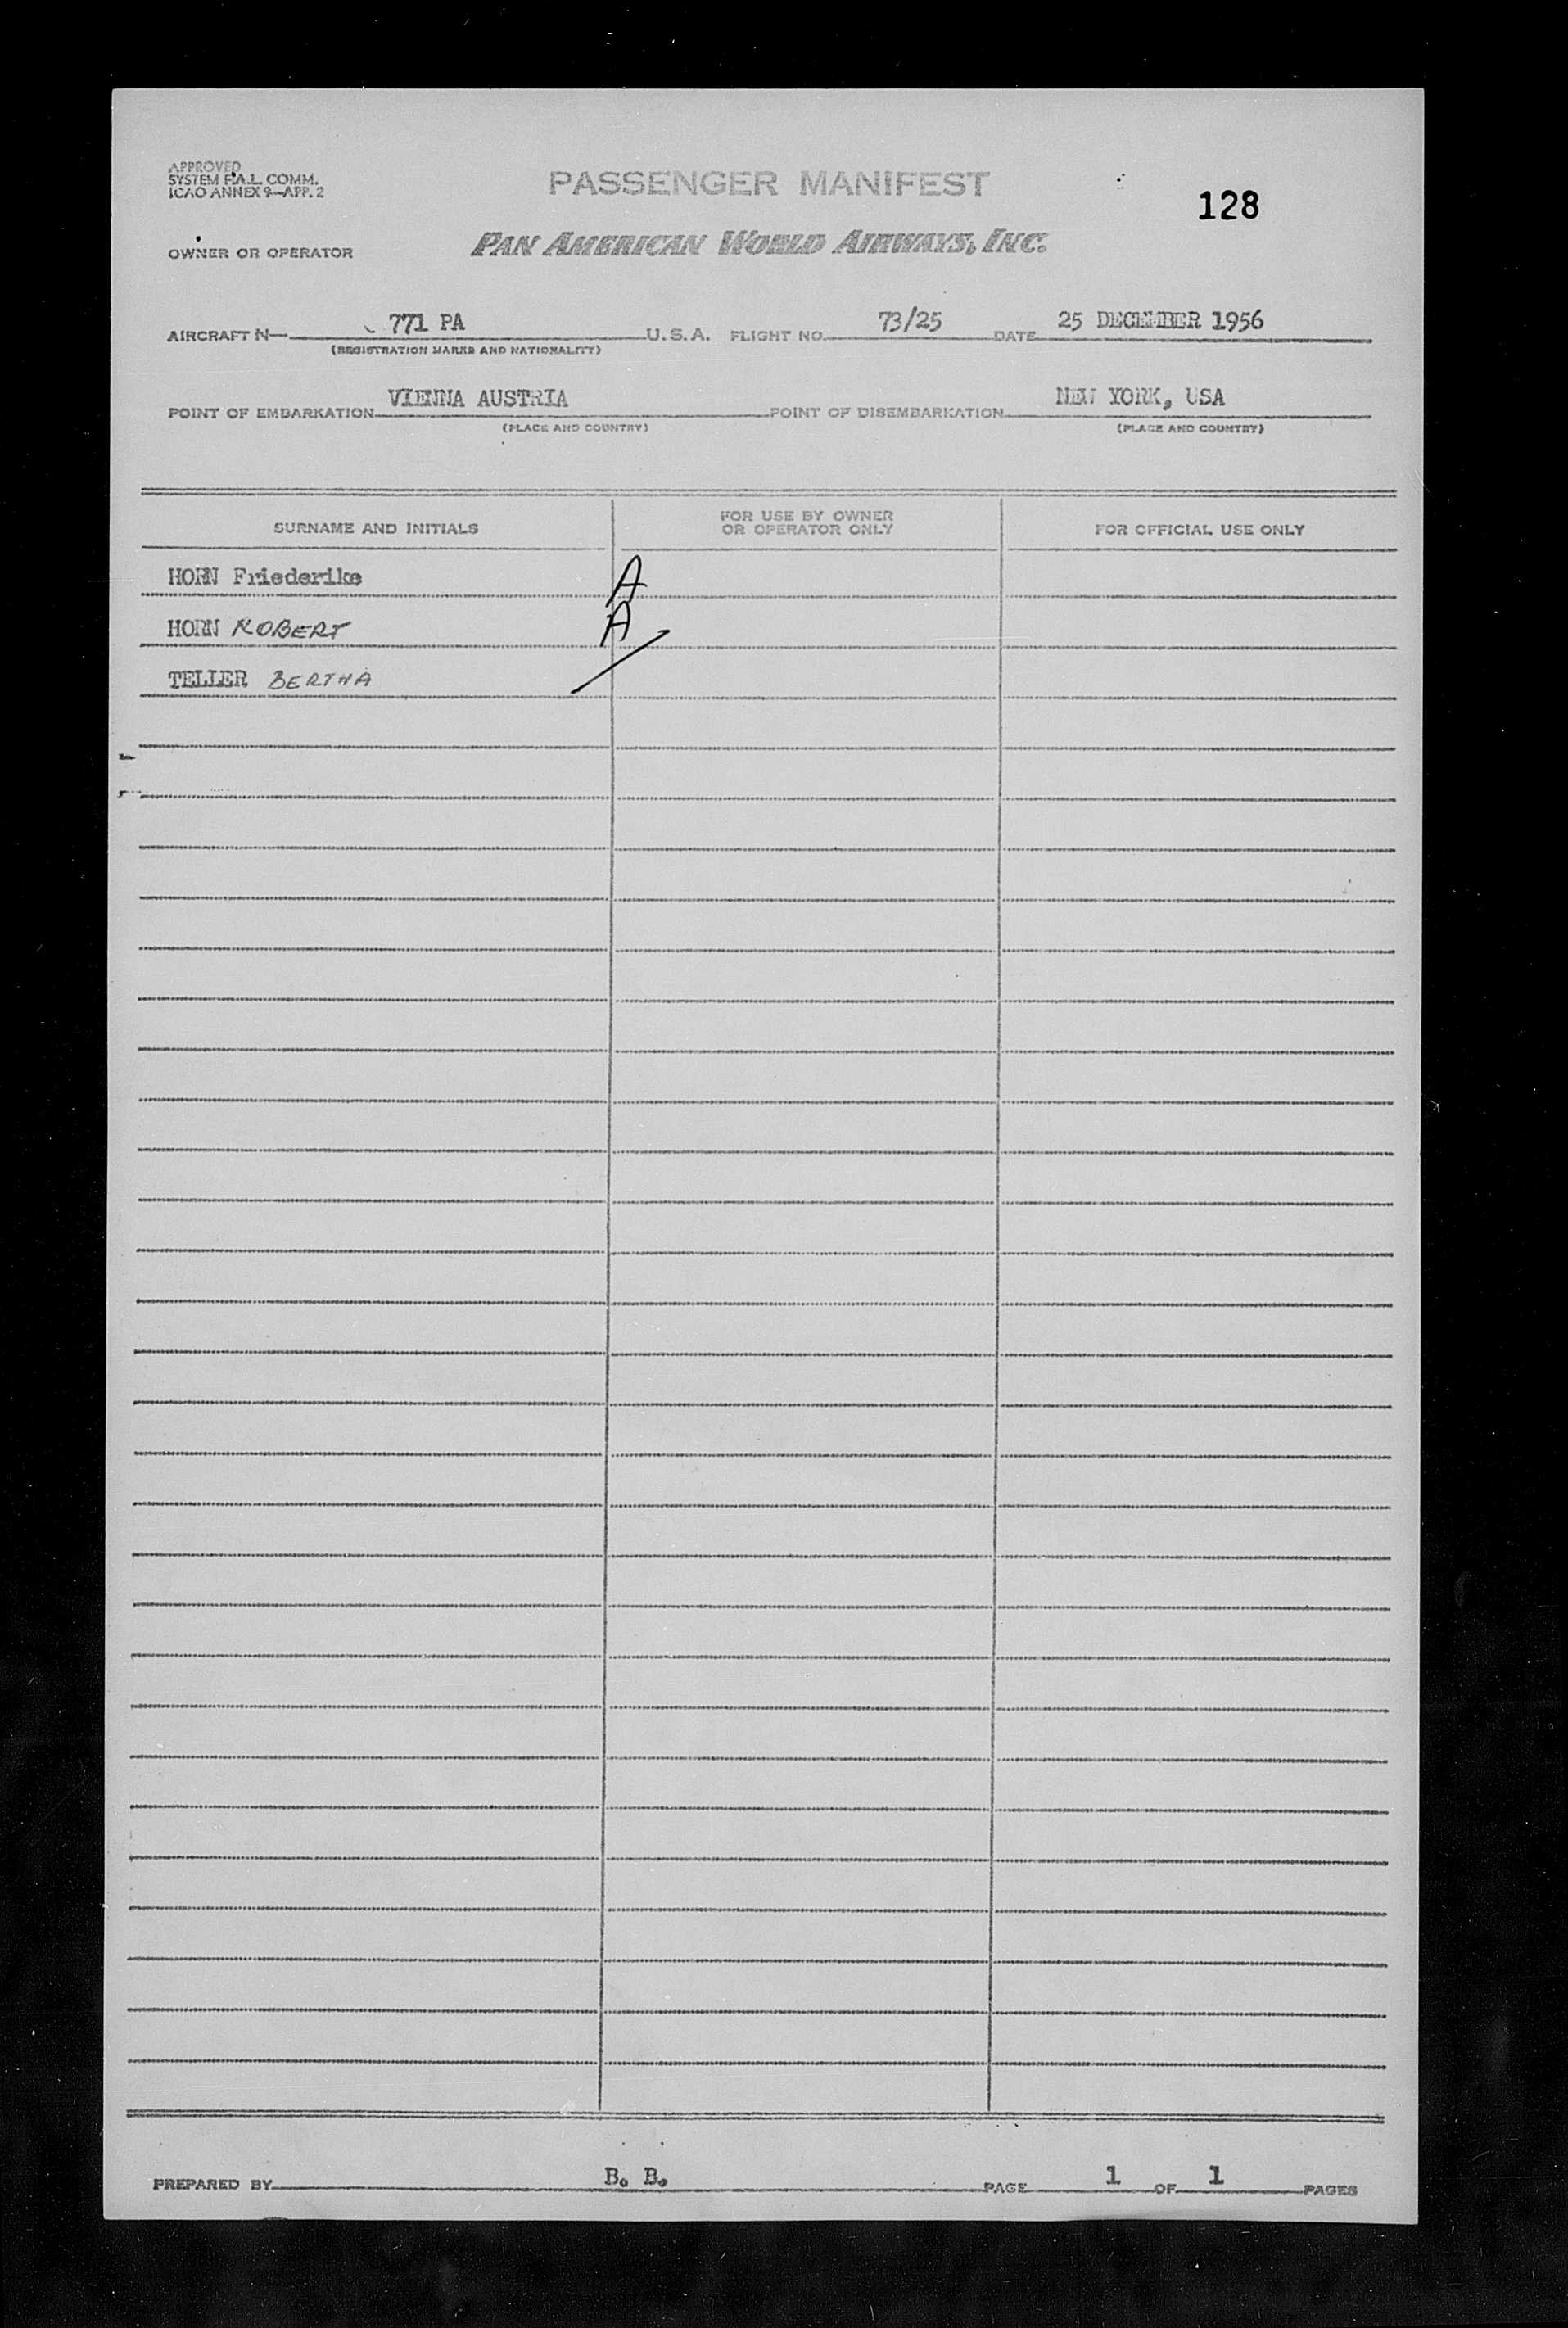 APPROVED
SYSTEM F.A.L. COMM.
ICAO ANNEX 9—APP. 2
PASSENGER MANIFEST
128
OWNER OR OPERATOR
PAN AMERICAN WORLD AIRWAYS, INC.
AIRCRAFT N— 771 PA U.S.A. FLIGHT NO. 73/25 DATE 25 DECEMBER 1956
(REGISTRATION MARKS AND NATIONALITY)
POINT OF EMBARKATION VIENNA AUSTRIA POINT OF DISEMBARKATION NEW YORK, USA
(PLACE AND COUNTRY) (PLACE AND COUNTRY)
SURNAME AND INITIALS
FOR USE BY OWNER
OR OPERATOR ONLY
FOR OFFICIAL USE ONLY
HORN Friederike A
HORN ROBERT A
TELLER BERTHA /
PREPARED BY B. B. PAGE 1 OF 1 PAGES